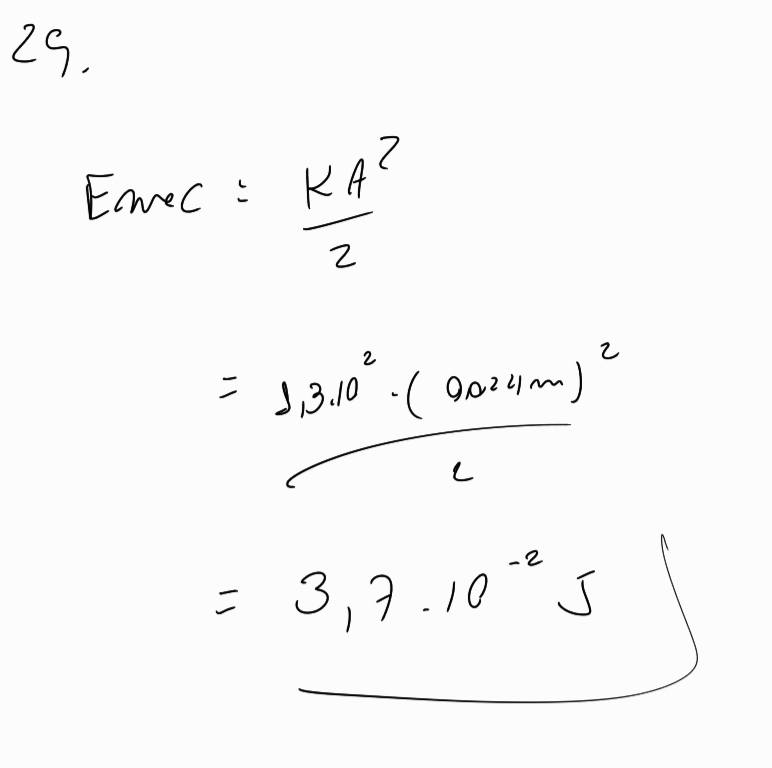 29.
Emec = KA²
2
= 1,3.10² .( 0,024m)²
2
= 3,7.10⁻² J